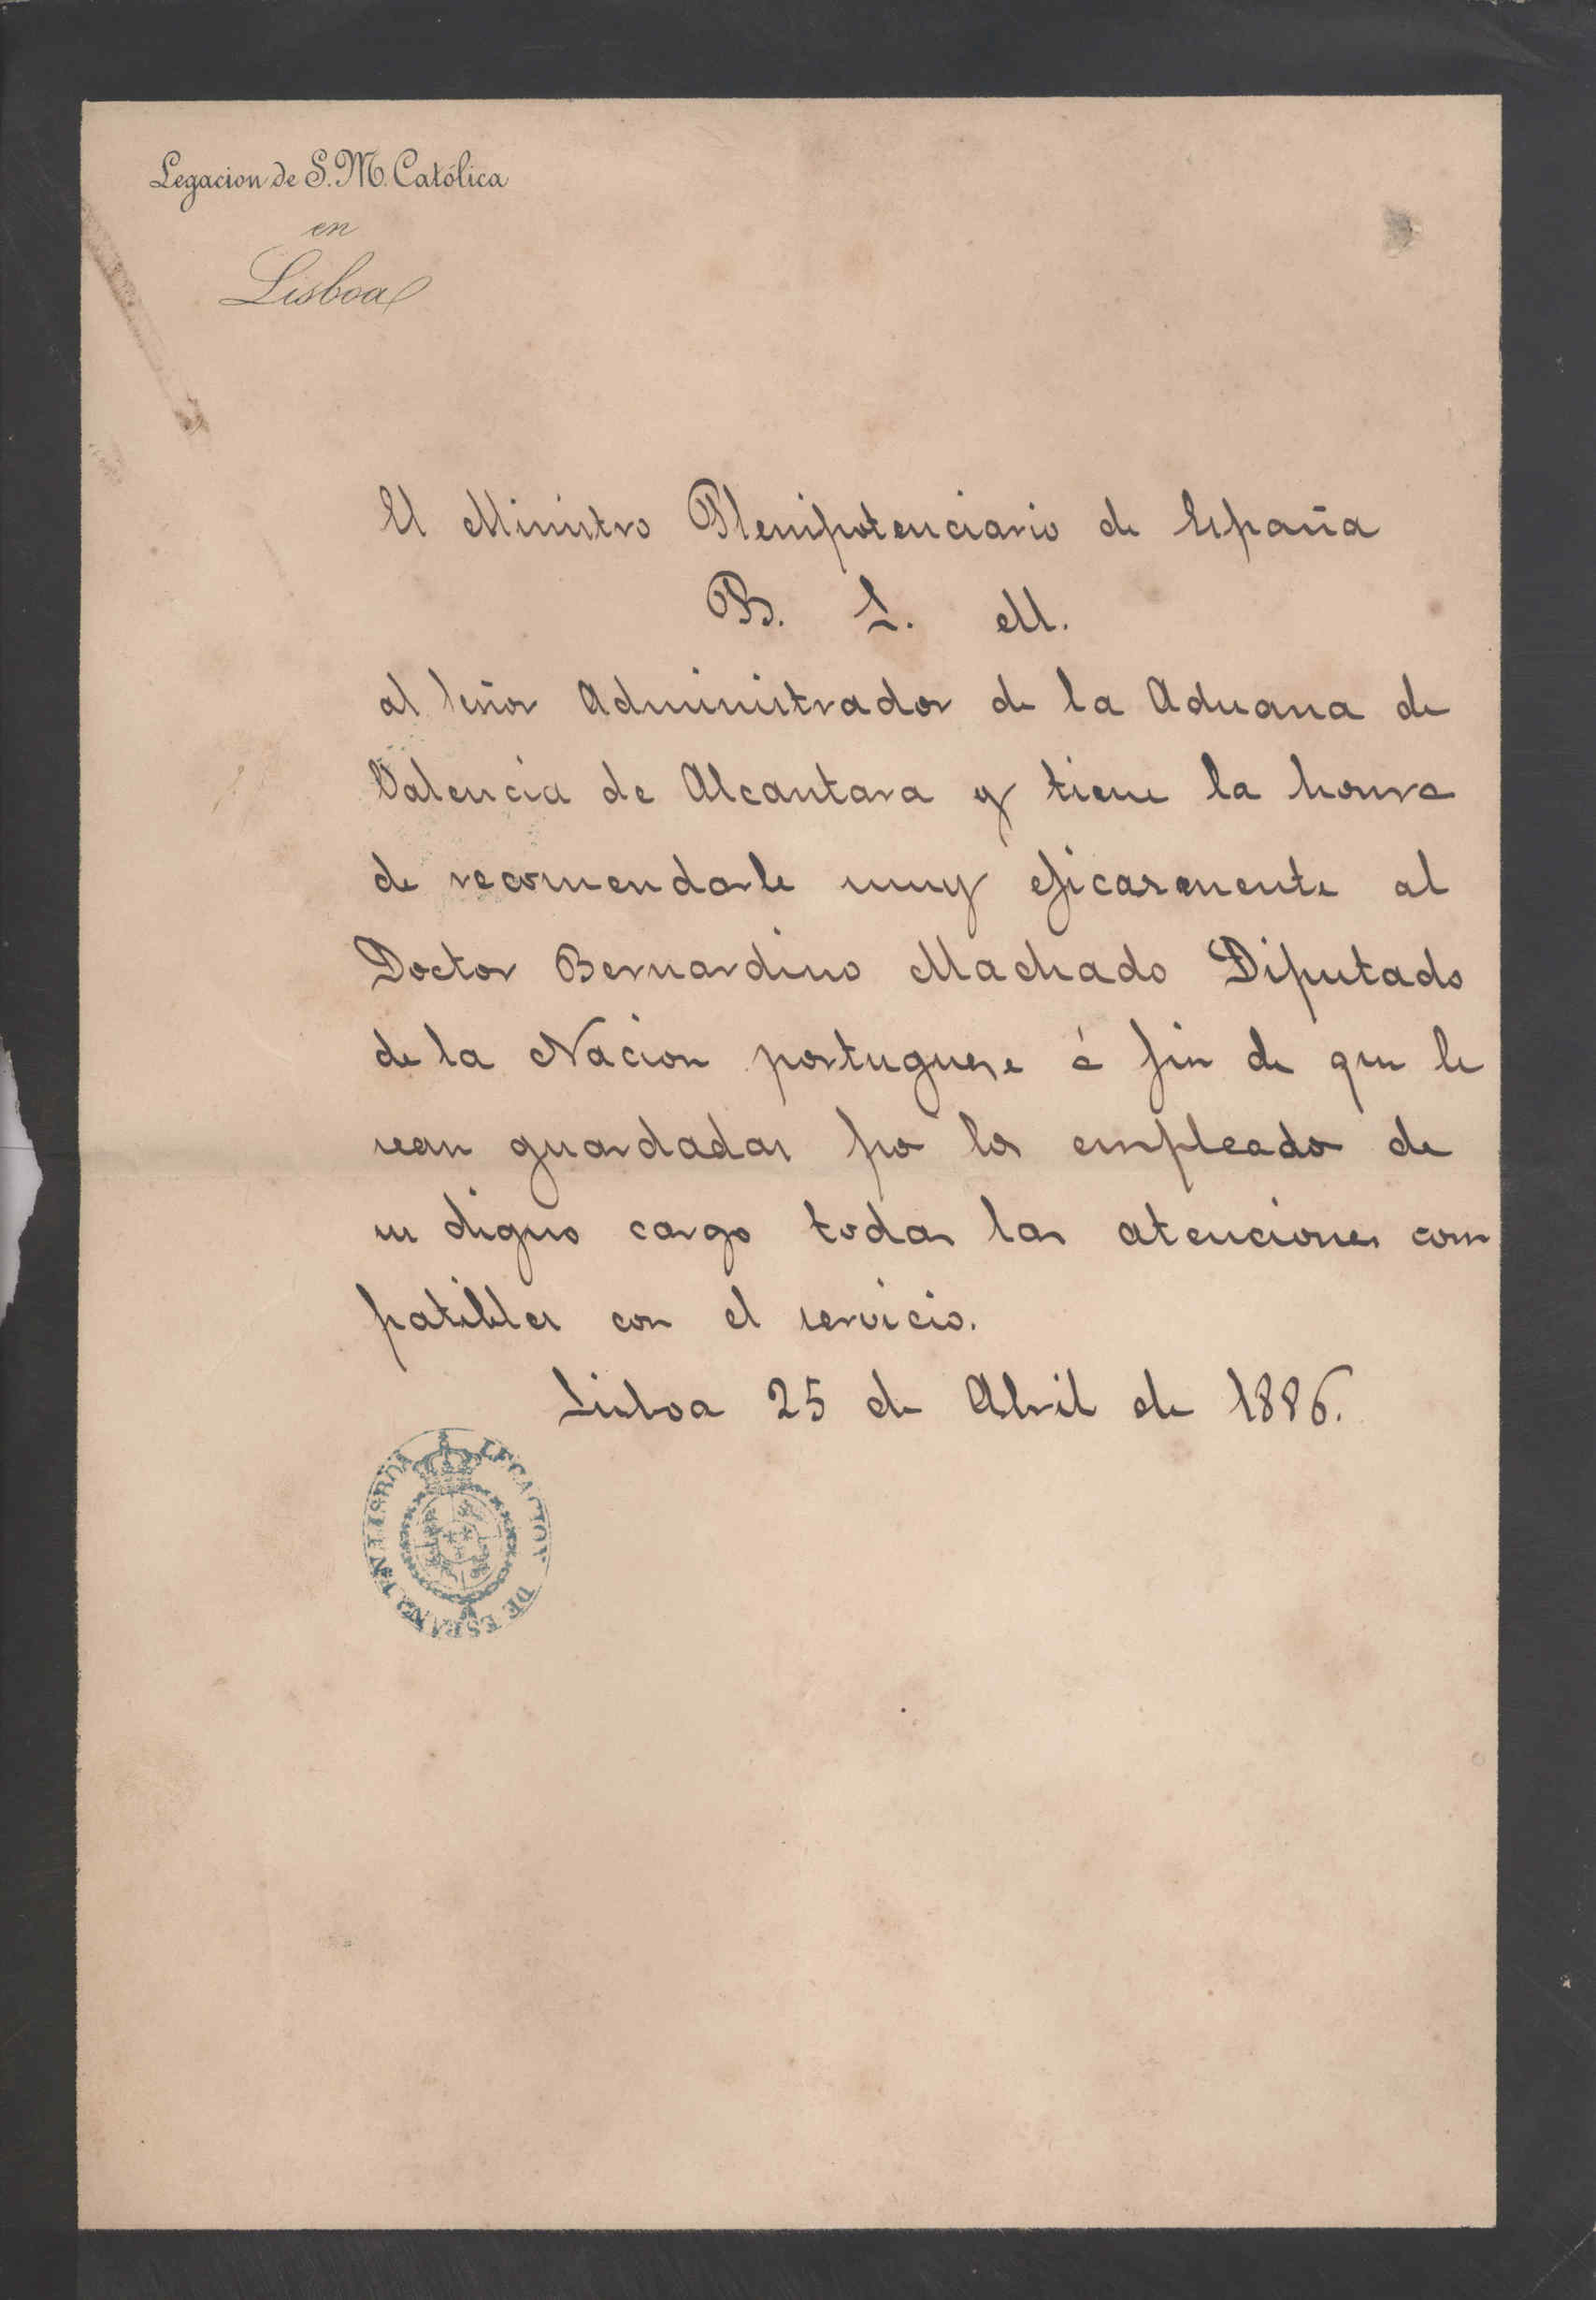 Legacion de S. M. Católica
en
Lisboa
El Ministro Plenipotenciario de España
B. L. M.
al Señor Administrador de la Aduana de
Valencia de Alcantara y tiene la honra
de recomendarle muy eficazmente al
Doctor Bernardino Machado Diputado
de la Nacion portuguesa á fin de que le
sean guardadas por los empleados de
su digno cargo todas las atenciones com
patibles con el servicio.
Lisboa 25 de Abril de 1886.
LEGACION DE ESPAÑA EN LISBOA